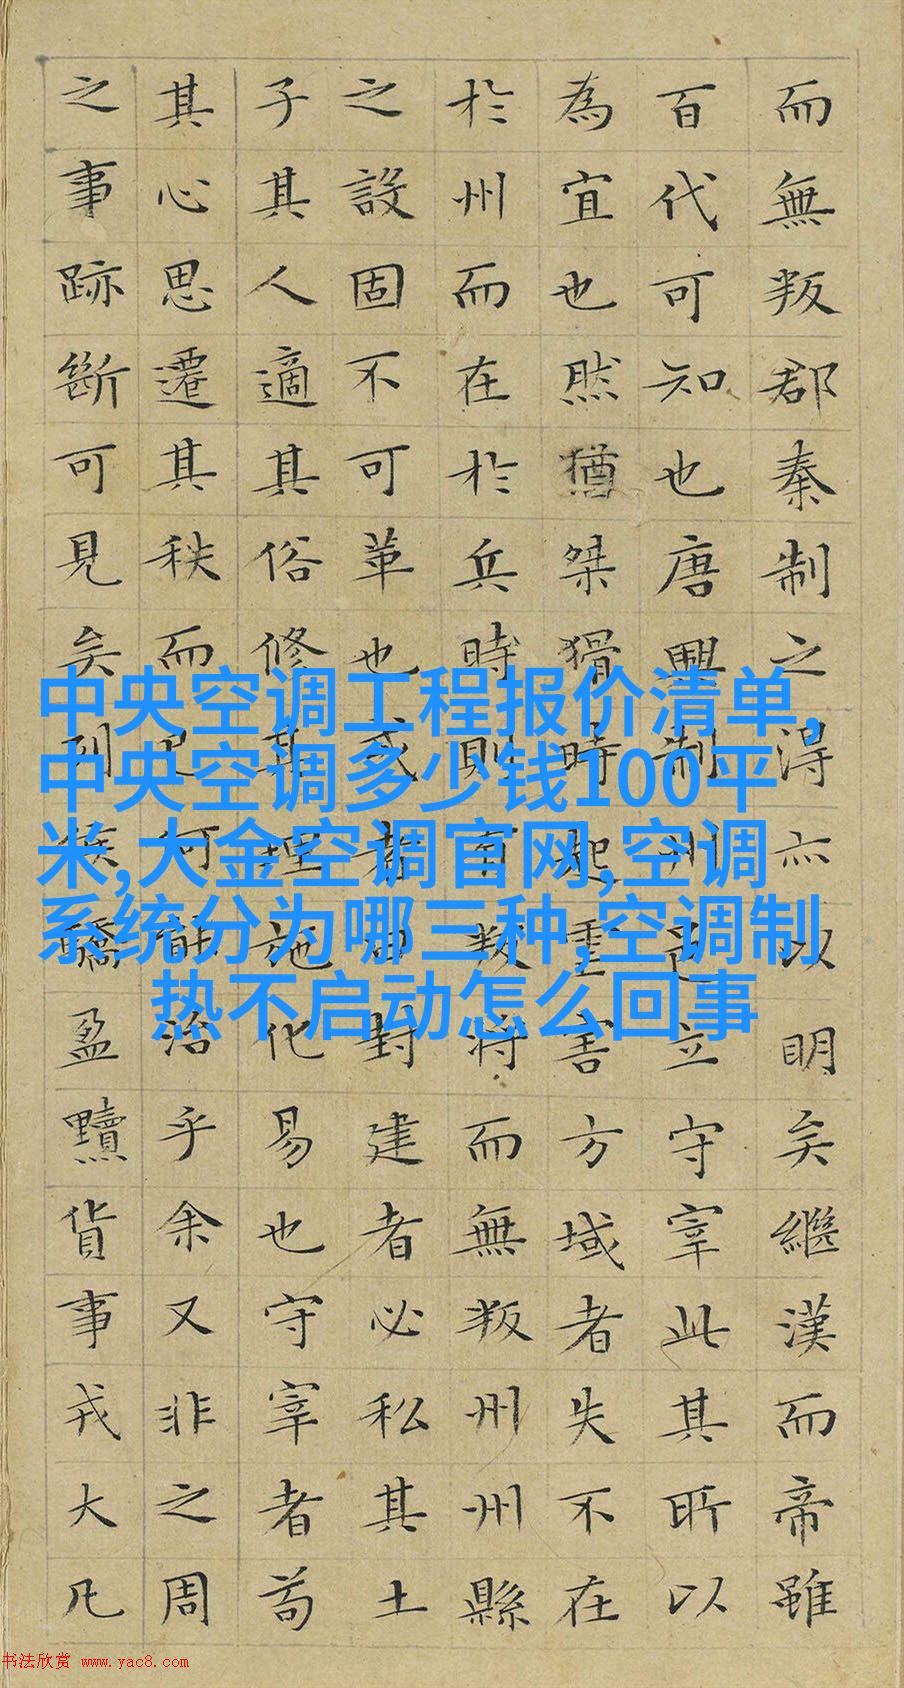 而無叛郡秦制之得亦以明矣繼漢而帝雖
百代可知也唐興制州邑立守宰此其所以
為宜也然猶桀猾時起害方域者失不在
於州而在於兵時則有叛將而無叛州州縣
之設固不可革也或者曰封建者必私其土
子其人適其俗修其理施化易也守宰者苟
其心思遷其秩而已何能治乎余又非之周
之事跡斷可見矣列侯驕盈黷貨事戎大凡
中央空调工程报价清单,
中央空调多少钱100平
米,大金空调官网,空调
系统分为哪三种,空调制
热不启动怎么回事
书法欣赏 www.yac8.com